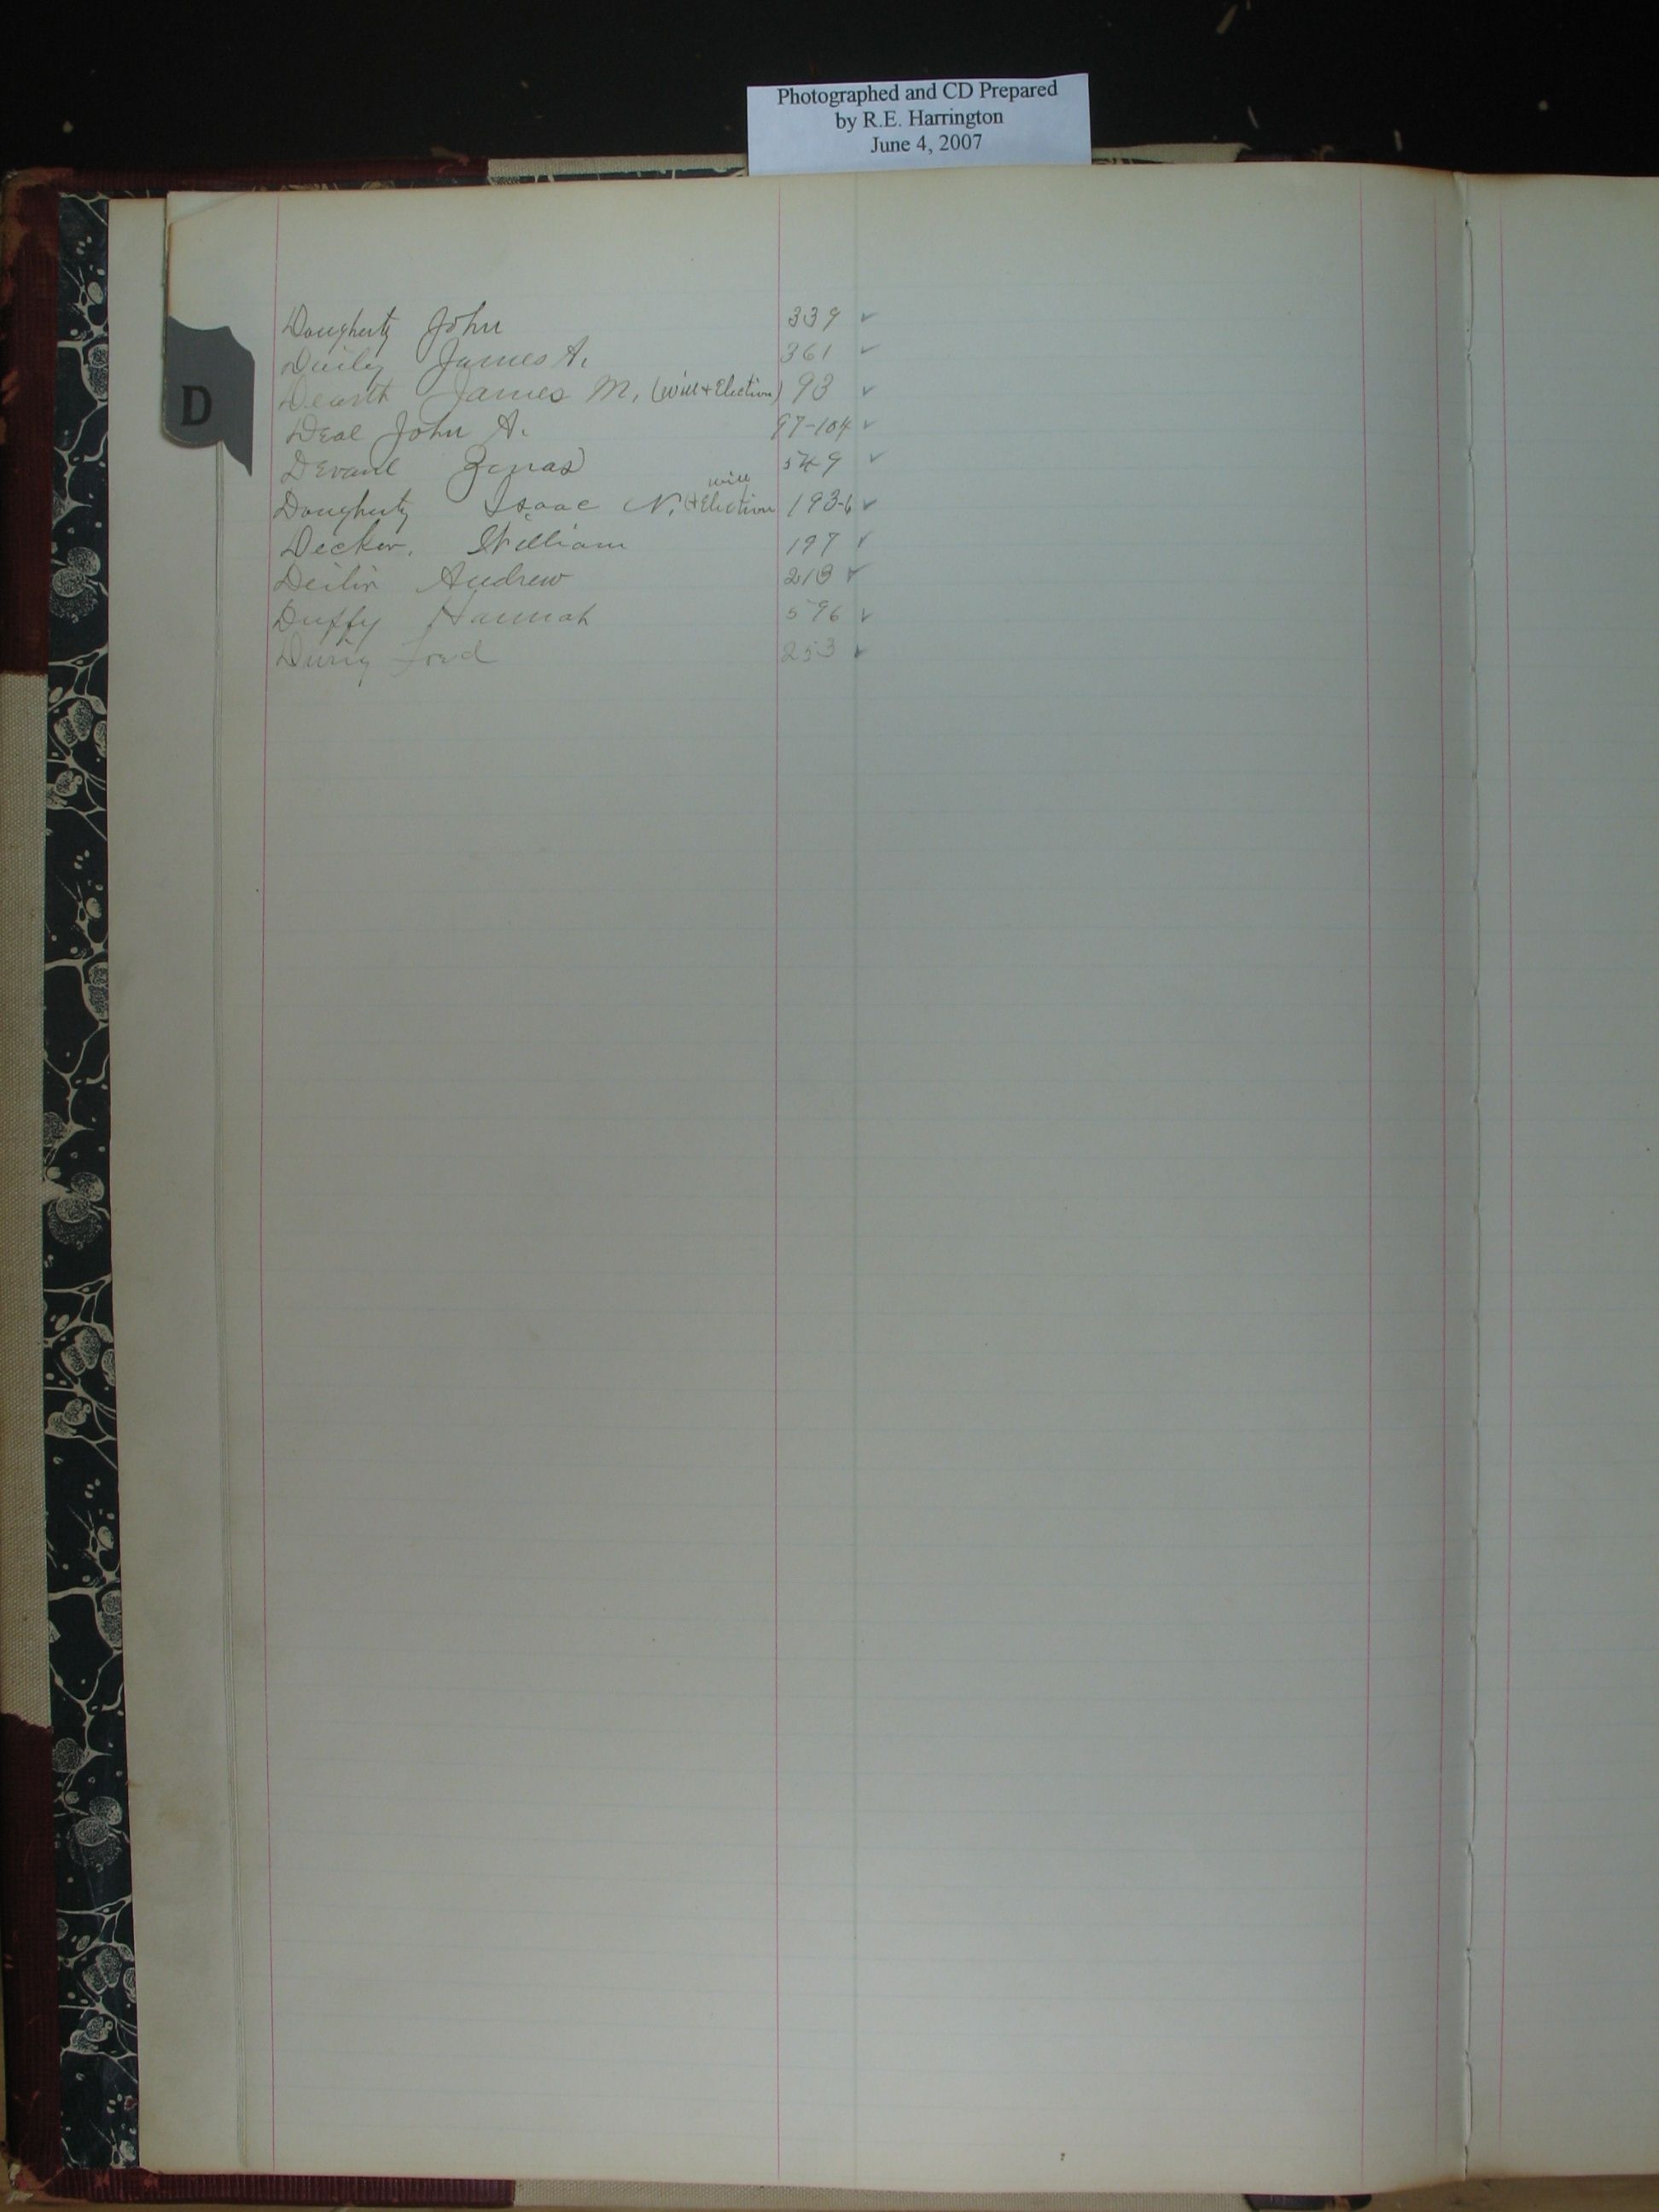 Photographed and CD Prepared
by R.E. Harrington
June 4, 2007
D
Dougherty John 339 ✓
Daily James A. 361 ✓
Dearth James M. (Will + Election) 93 ✓
Deal John A. 97-104 ✓
Devane Zenas 549 ✓
will
Dougherty Isaac N. (+ Election 193-6 ✓
Decker, William 197 ✓
Andrew ✓
Duffy Hannah 596 ✓
Fred 253 ✓